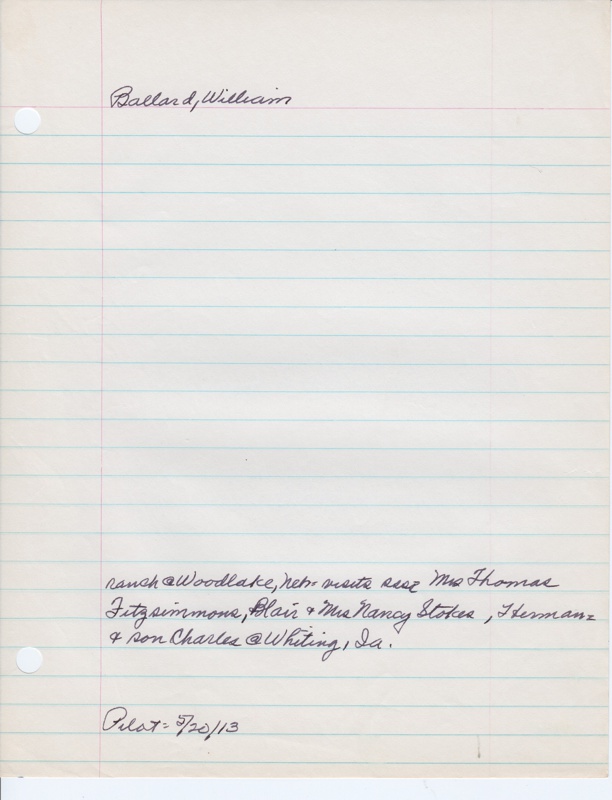 Ballard, William
ranch @ Woodlake, Neb- visits sss Mrs Thomas
Fitzsimmons, Blair & Mrs Nancy Stokes, Herman=
& son Charles @ Whiting, Ia.
Pilot= 5/20/13